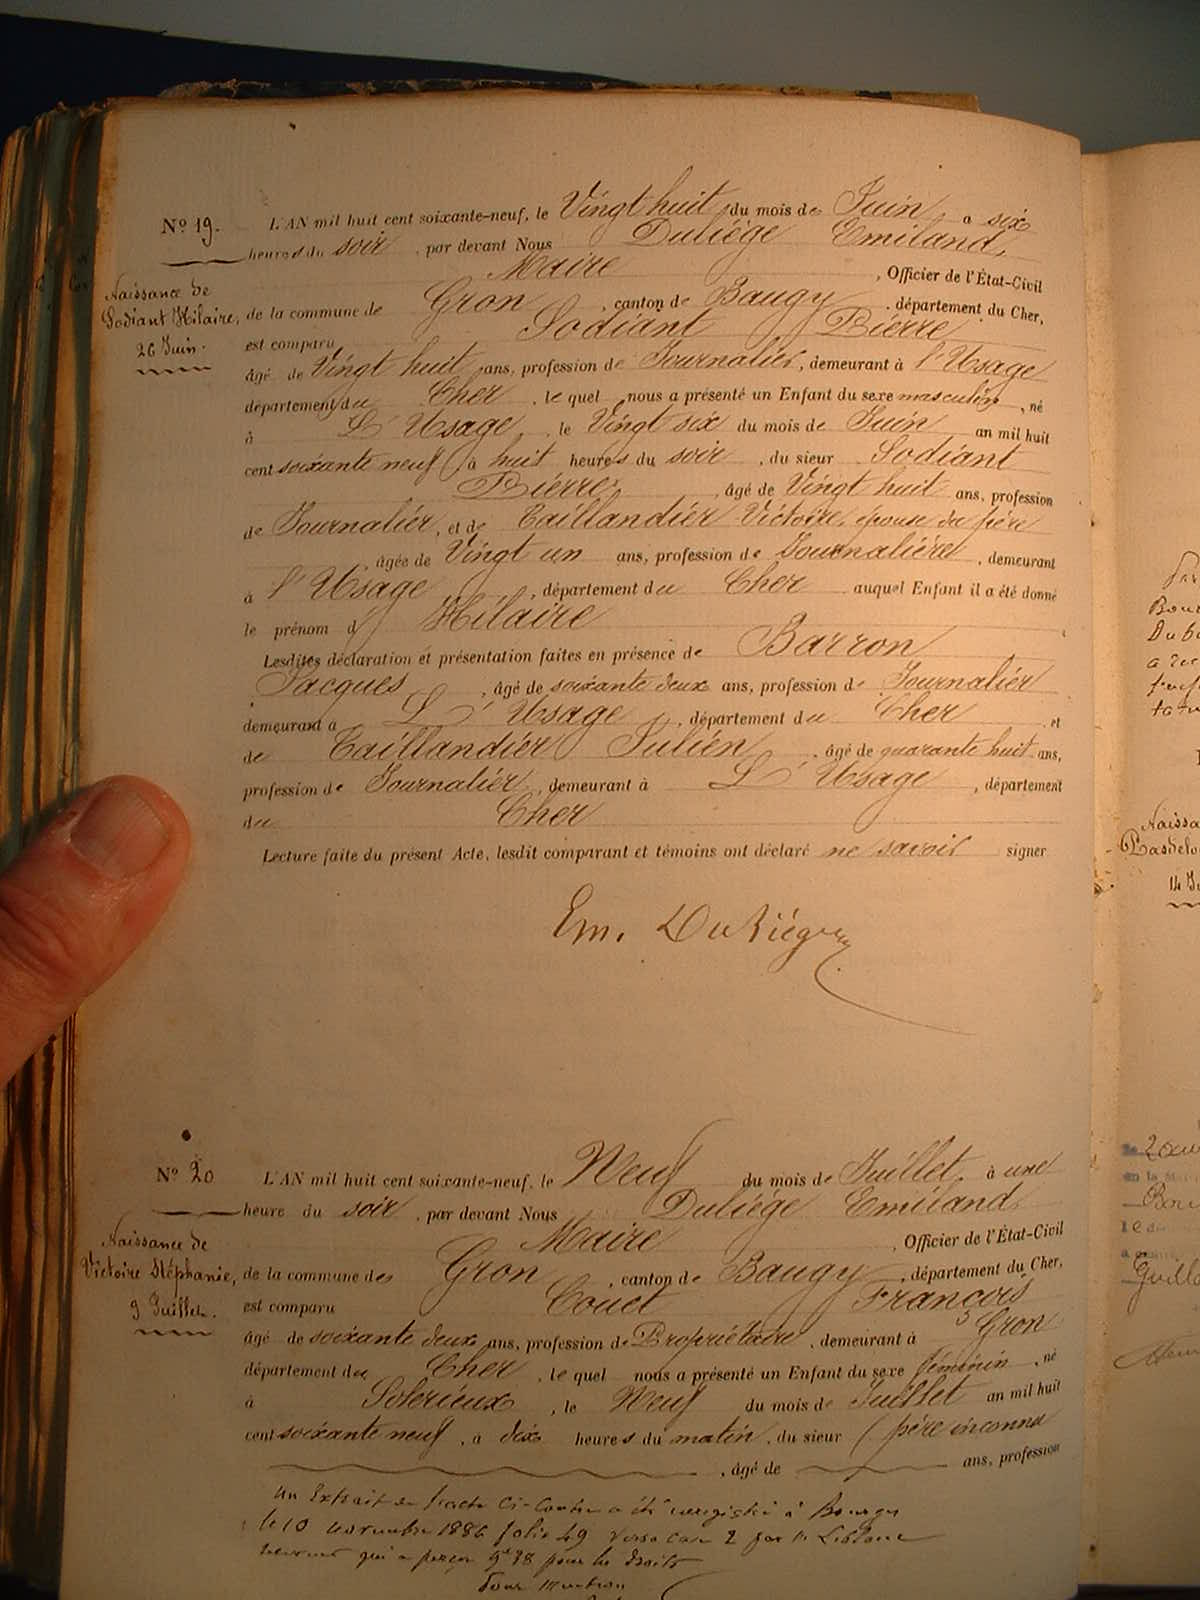 Nº 19.
L'AN mil huit cent soixante-neuf, le Vingt huit du mois de Juin a six
heures du soir, par devant Nous Duliége Emiland,
Maire, Officier de l'État-Civil
Naissance de
Sodiant Hilaire,
26 Juin.
de la commune de Gron, canton de Baugy, département du Cher,
est comparu Sodiant Pierre
âgé de Vingt huit ans, profession de Journalier, demeurant à l'Usage
département du Cher, le quel nous a présenté un Enfant du sexe masculin, né
à L'Usage, le Vingt six du mois de Juin an mil huit
cent soixante neuf à huit heures du soir, du sieur Sodiant
Pierre, âgé de Vingt huit ans, profession
de Journalier, et de Taillandier Victoire, épouse du père
âgée de Vingt un ans, profession de Journalière, demeurant
à l'Usage, département du Cher auquel Enfant il a été donné
le prénom d' Hilaire
Lesdites déclaration et présentation faites en présence de Barron
Jacques, âgé de soixante deux ans, profession de Journalier
demeurant à L'Usage, département du Cher et
de Taillandier Julien, âgé de quarante huit ans,
profession de Journalier, demeurant à L'Usage, département
du Cher
Lecture faite du présent Acte, lesdit comparant et témoins ont déclaré ne savoir signer
Em. Duliége
Nº 20
L'AN mil huit cent soixante-neuf, le Neuf du mois de Juillet, à une
heure du soir, par devant Nous Duliége Emiland
Maire, Officier de l'État-Civil
Naissance de
Victoire Stéphanie,
9 Juillet.
de la commune de Gron, canton de Baugy, département du Cher,
est comparu Couet François
âgé de soixante deux ans, profession de Propriétaire, demeurant à Gron
département du Cher, le quel nous a présenté un Enfant du sexe féminin, né
à Solerieux, le Neuf du mois de Juillet an mil huit
cent soixante neuf, à dix heures du matin, du sieur (père inconnu
, âgé de ans, profession
un Extrait de l'acte Ci-Contre a été enregistré à Bourges
le 10 novembre 1886 folio 49 verso case 2 par
qui a perçu pour les droits
Pour mention
Naissa
14 Ju